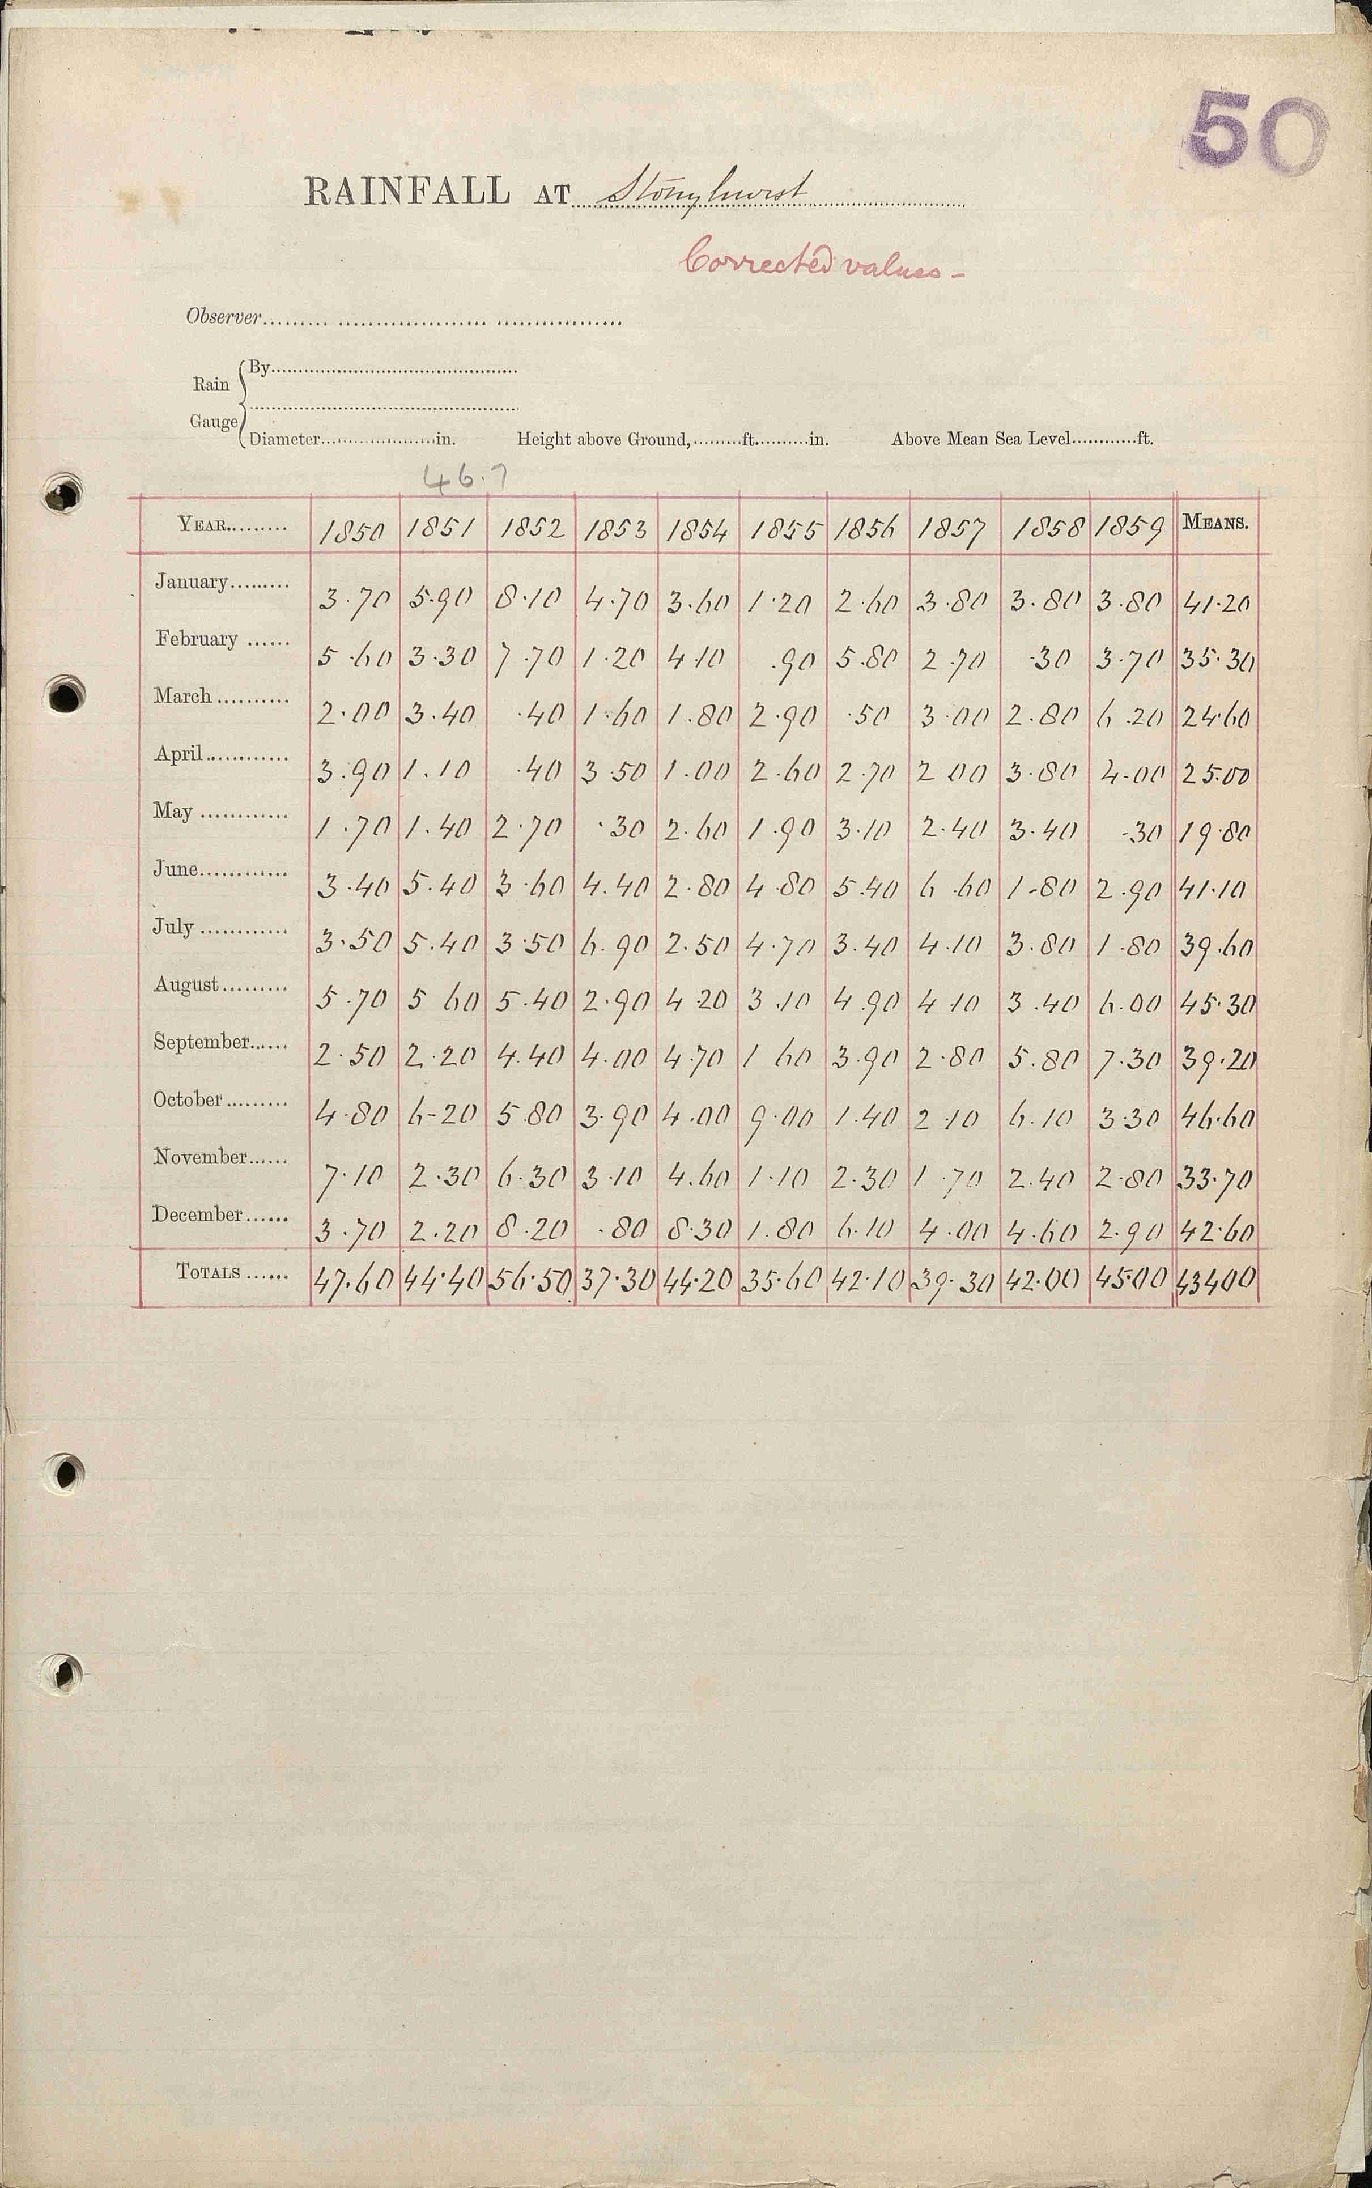 50
RAINFALL AT Stonyhurst
Corrected values -
Observer
Rain Gauge
By
Diameter in. Height above Ground, ft. in. Above Mean Sea Level ft.
46.7
YEAR 1850 1851 1852 1853 1854 1855 1856 1857 1858 1859 MEANS.
January 3.70 5.90 8.10 4.70 3.60 1.20 2.60 3.80 3.80 3.80 41.20
February 5.60 3.30 7.70 1.20 4.10 .90 5.80 2.70 .30 3.70 35.30
March 2.00 3.40 .40 1.60 1.80 2.90 .50 3.00 2.80 6.20 24.60
April 3.90 1.10 .40 3.50 1.00 2.60 2.70 2.00 3.80 4.00 25.00
May 1.70 1.40 2.70 .30 2.60 1.90 3.10 2.40 3.40 .30 19.80
June 3.40 5.40 3.60 4.40 2.80 4.80 5.40 6.60 1.80 2.90 41.10
July 3.50 5.40 3.50 6.90 2.50 4.70 3.40 4.10 3.80 1.80 39.60
August 5.70 5.60 5.40 2.90 4.20 3.10 4.90 4.10 3.40 6.00 45.30
September 2.50 2.20 4.40 4.00 4.70 1.60 3.90 2.80 5.80 7.30 39.20
October 4.80 6.20 5.80 3.90 4.00 9.00 1.40 2.10 6.10 3.30 46.60
November 7.10 2.30 6.30 3.10 4.60 1.10 2.30 1.70 2.40 2.80 33.70
December 3.70 2.20 8.20 .80 8.30 1.80 6.10 4.00 4.60 2.90 42.60
TOTALS 47.60 44.40 56.50 37.30 44.20 35.60 42.10 39.30 42.00 45.00 434.00